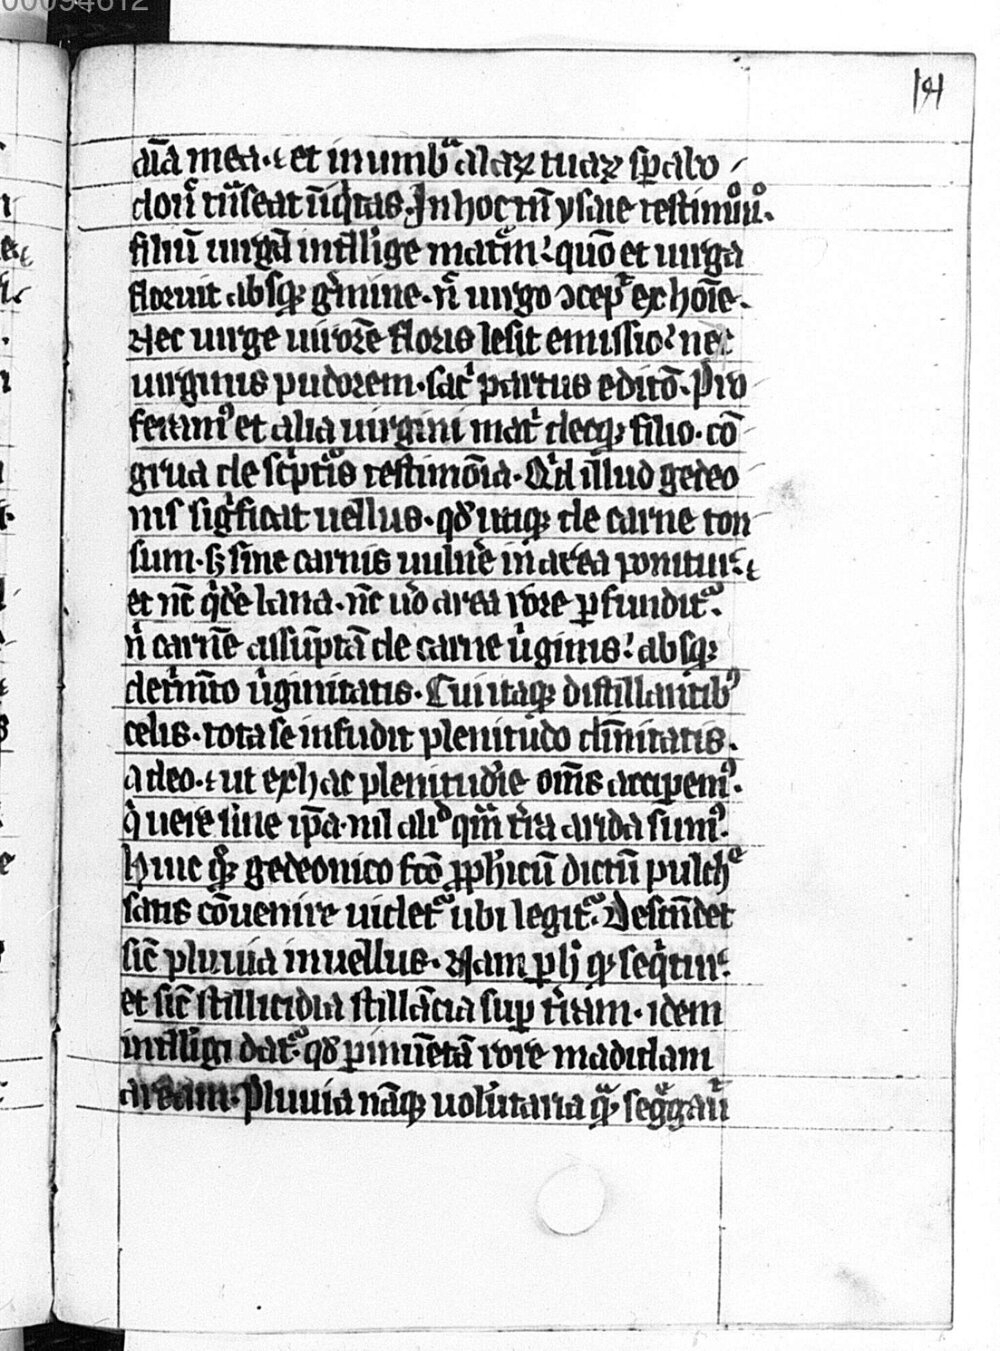 00094612
191
aīa mea · ⁊ et in umbᵃ alaꝝ tuaꝝ sꝑabo
donͨ tͣnseat īiqͥtas. In hoc tn̄ ysaie testimͦnͦ.
filiū uirgā intelłige matͥm: quō et uirga
floruit absqꝫ gͥmine · nͨ uirgo ↄcepͥt ex hoīe.
Nec uirge uirorē floris lesit emissio: nec
uirginis pudorem · sacͥ partus editō. Pro
feramꝰ et alia uirgini matͥ deqꝫ filio · cō
grua de scͥptͥs testimōia. Qͥd illud gedeo
nis sigͥficat uellus · qd̕ utiqꝫ de carne ton
sum · sꝫ sine carnis uulnͤe in area ponitur: ⁊
et nc̄ qͥdē lana · nc̄ uͦ area rore ꝑfunditᷣ:
nͥ carnē assūptā de carne uͥginis: absqꝫ
detͥmͤto uͥginitatis. Cui itaqꝫ distillantibꝰ
celis · tota se infudit plenitudo diͥnitatis.
adeo · ⁊ ut ex hac plenitudīe om̄s accipemꝰ.
qͥ uere sine ip̄a · nil aliͩ qͣm tͥra arida sumꝰ.
Huic qͦꝫ gedeonico fcō ꝓph̕icū dictū pulchͤ
satis cōuenire uidetᷣ ubi legitᷣ. Descēdet
sic̄ pluuia in uellus. Nam ꝑ h̕ qͦ seqͥtur:
et sic̄ stillicidia stillācia suꝑ tͥram · idem
intelłigi datᷣ: qd̕ ꝑ inuētā rore madidam
aream. Pluuia nāqꝫ uolūtaria qͣꝫ segͤgauͥ